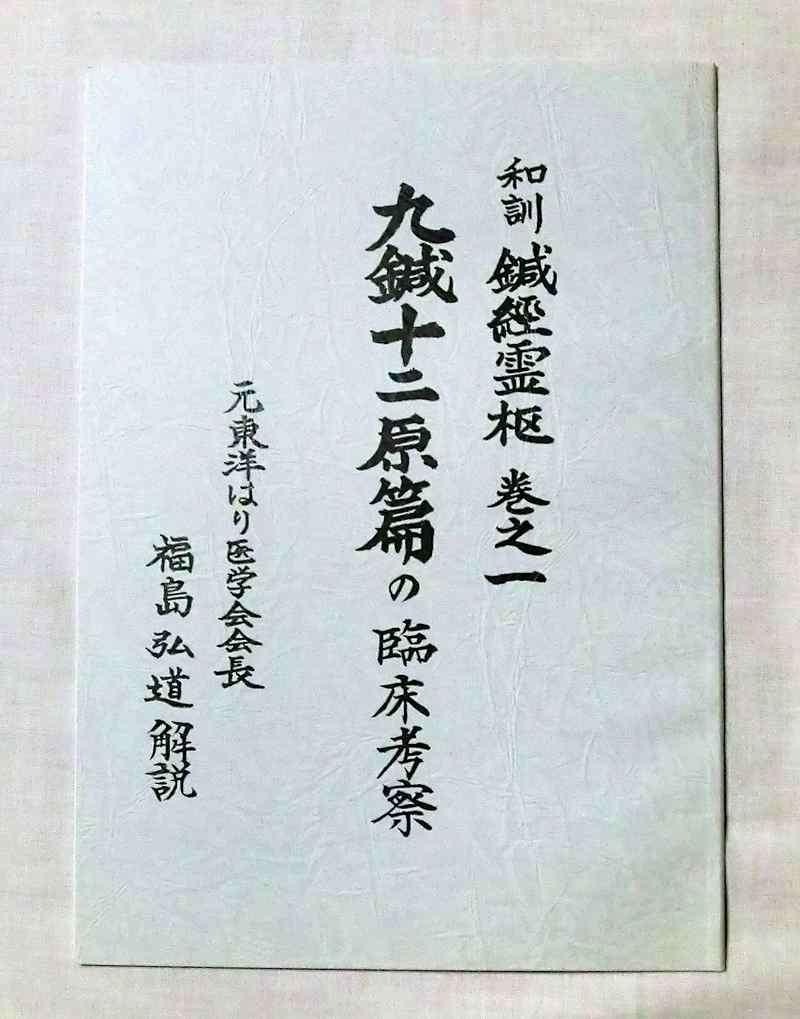 和訓 鍼經霊枢 巻之一
九鍼十二原篇の臨床考察
元東洋はり医学会会長
福島弘道 解説